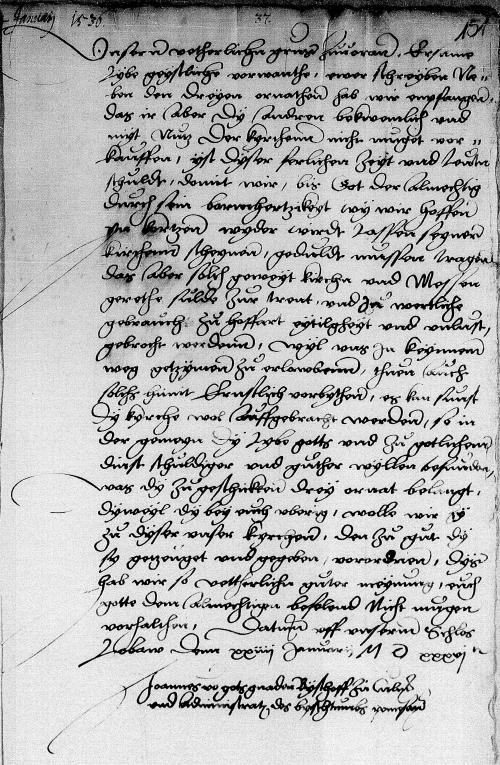 Januarij 1536 37. 151
Unsern vetherlichn grus zuvoran, Ersame
Lybe geystliche vorwanthe, ewer schreyben Ne-
ben den dreyen ornathen hab wir empfangen,
das ir aber dy andren bekwemlich und
myt Nutz der kyrchenn nicht muget vor-
kauffen, yst dyser ferlichen Zeyt und leuten
schuldt, domit wir, bis Got der Almechtig
durch sein barmhertzikeyt wy wir hoffen
in kortzen wyder wirdt lassen seyner
kirchenn scheynen, geduldt mussen tragen
das aber solch geweyt kirchn und Messen
gerethe sulde zur trent, und zu wertliche
gebrauch zu hoffart eytilgheyt und unlust,
gebrocht werdenn, wyl uns in keynem
weg getzymen zu erlawbenn, thuen auch
solchs himit Ernstlich vorbythen, es kan sunst
dy kyrche wol auffgebracht werden, so in
der gemeyn dy lybe gotts und zu gotlichem
dinst schuldiger und guther wyllen befunden,
was dy zu geschickten drey ornat belangt,
dyweyl dy bey euch uberig, wolle wir dy
zu dyser unser kyrchen, den zu gut dy
sy getzeuget und gegeben, vorordnen, dys
hab wir so vettherlichn guter meynung, euch
gotte dem Almechtigen befelend Nicht mugen
vorhalthen, Datum uff unserem Schlos
Lobaw den xxiiij Januarij M D xxxvj
Joannes vo gots gnaden Bysschoff zu Culm
und Administrator des bysschtumbs pomezan